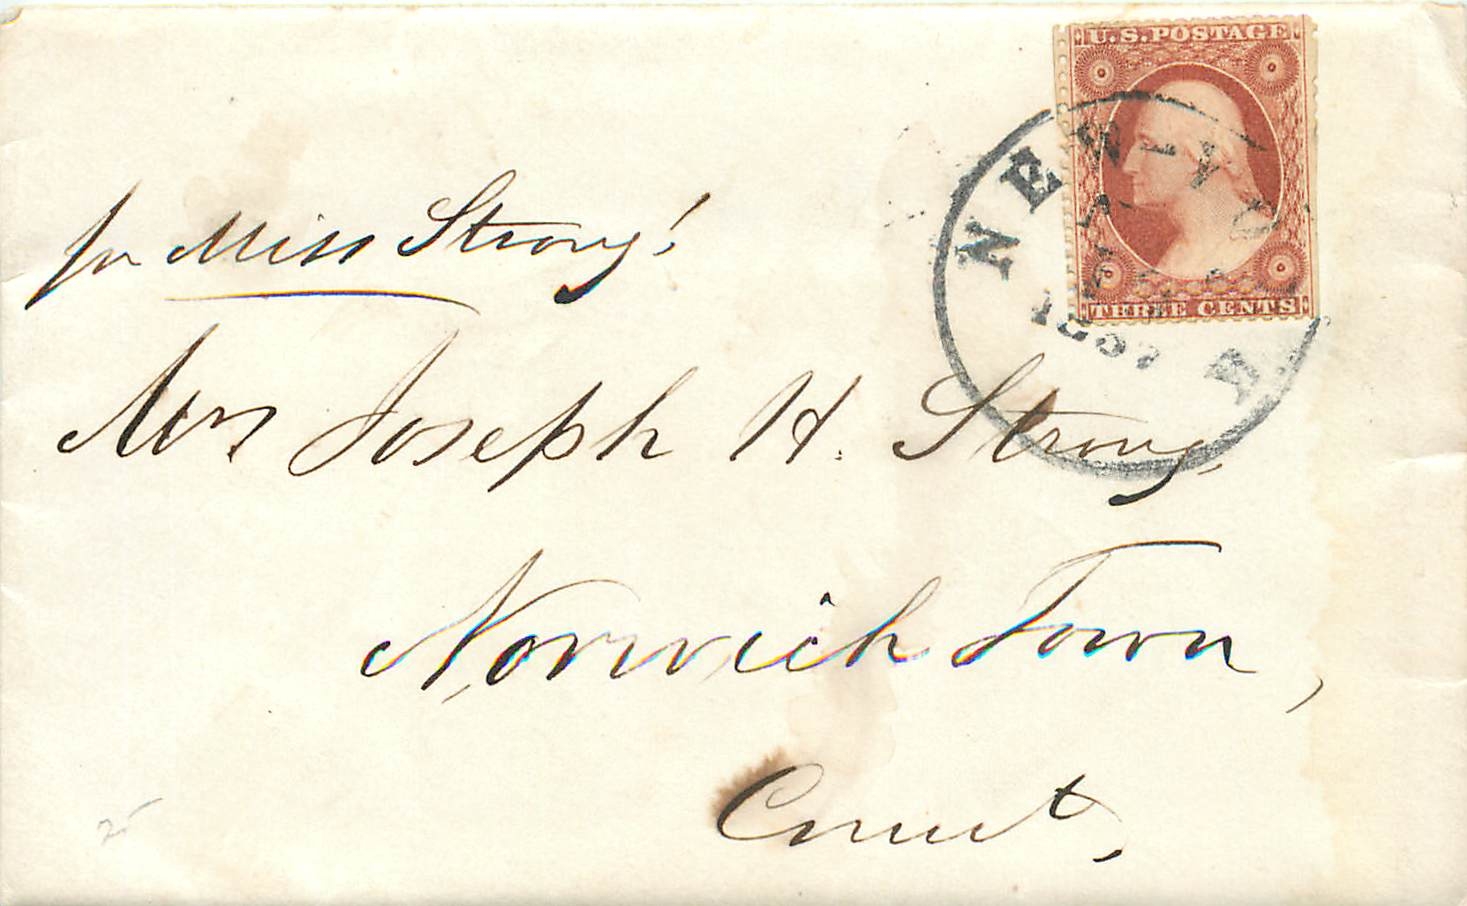 U.S. POSTAGE
THREE CENTS
NEW-YORK
1857
for Miss Strong!
Mrs Joseph H. Strong.
Norwich Town,
Connt,